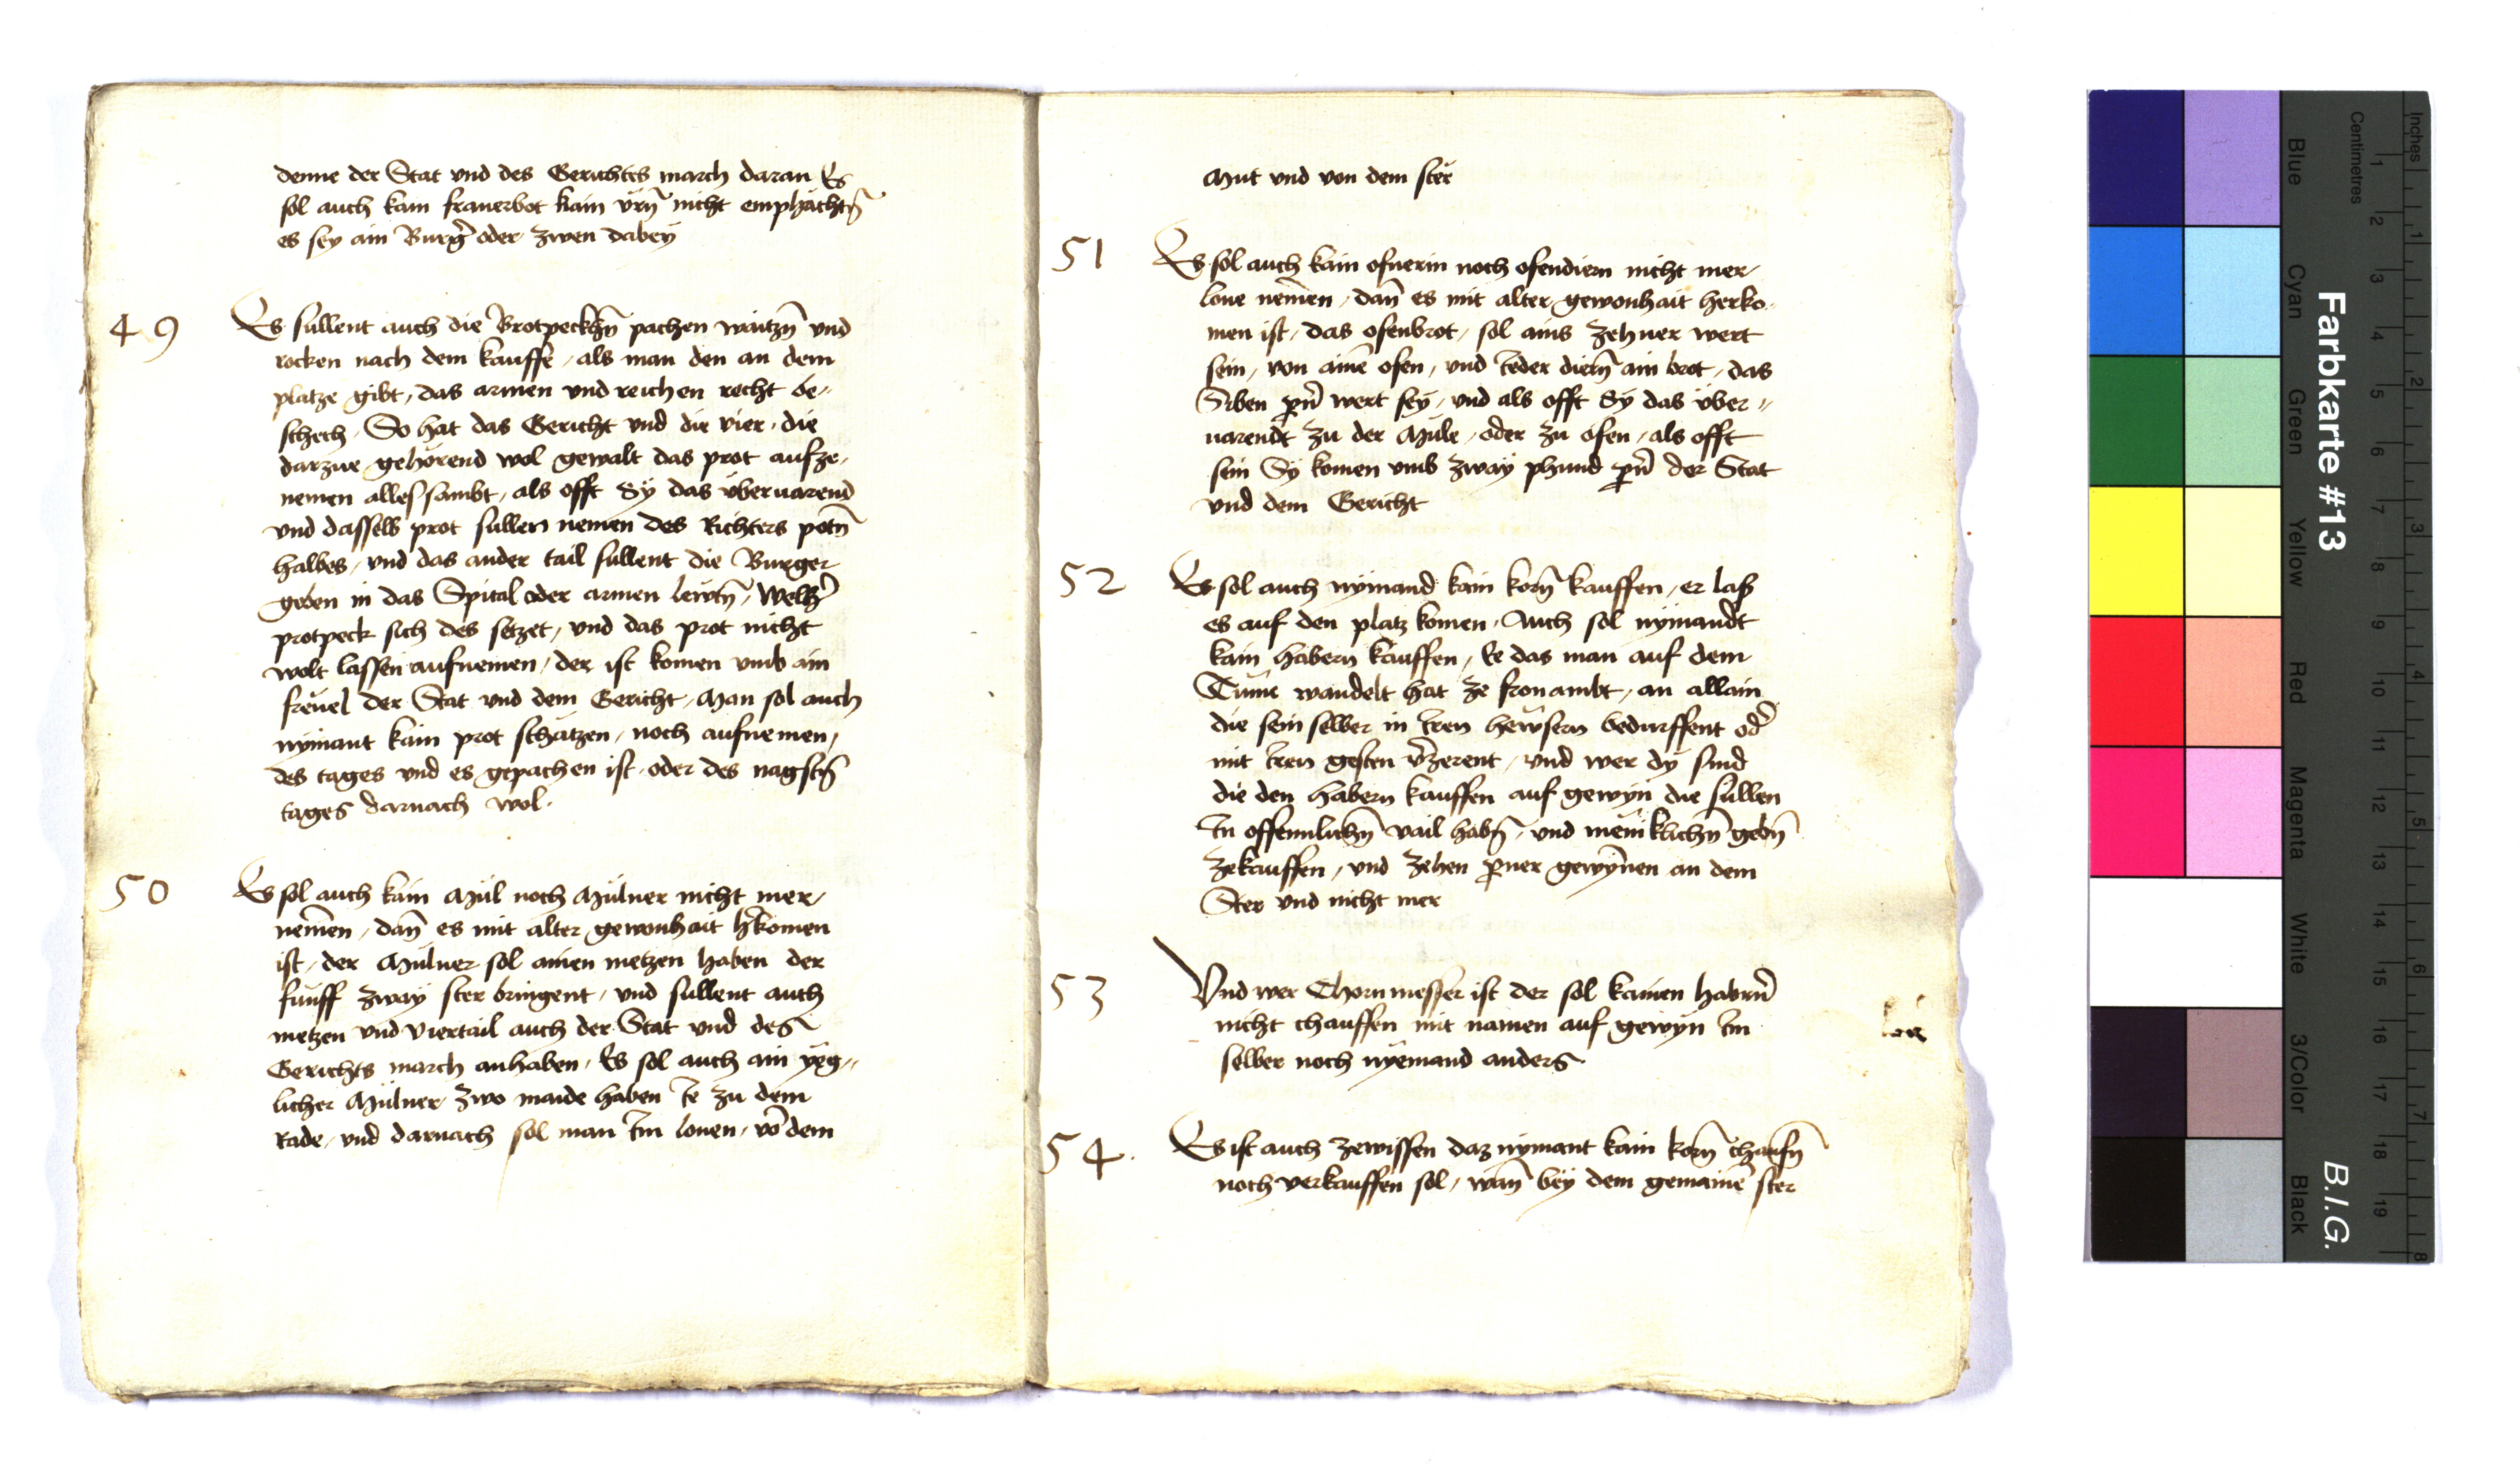 denne der Stat vnd des Gerichtes march daran Es
sol auch kain fronerbot kain vrn̄ nicht emphächtn̄
es sey ain Burg̉ oder zwen dabey
49 Es süllent auch die Brotpeckhn̄ pachen waitzn̄ vnd
rocken nach dem kauffe / als man den an dem
platze gibt / das armen vnd reichen recht be //
schech / So hat das Gericht vnd die vier / die
darzue gehörend wol gewalt das prot aufze /
nemen alles sambt / als offt Sÿ das überuarend
vnd dasselb prot süllen nemen des Richters potn̄
halbes / vnd das ander tail süllent die Burger
geben in das Spital oder armen lewtn̄ / Welh̉
protpeck sich des setzet / vnd das prot nicht
wolt lassen aufnemen / der ist komen vmb ain
freuel der Stat vnd dem Gericht / Man sol auch
nÿmant kain prot schätzen / noch aufnemen /
des tages vnd es gepachen ist / oder des nagstn̄
tages darnach wol.
50 Es sol auch kain Mül noch Mülner nicht mer /
nemen / dan̄ es mit alter gewonhait h̉komen
ist / der Mülner sol ainen metzen haben der
fünff zwaÿ ster bringent / vnd süllent auch
metzen vnd viertail auch der Stat vnd des
Gerichts march anhaben / Es sol auch ain yeg //
licher Mülner zwo maide haben Ie zu dem
Rade / vnd darnach sol man Im lonen / vō dem
Mut vnd von dem ster
51 Es sol auch kain ofnerin noch ofendiern nicht mer /
lone nemen / dan̄ es mit alter gewonhait herko /
men ist / das ofenbrot / sol ains zehner wert
sein / von ainē ofen / vnd Ieder diern̄ ain brot / das
Siben pn̉ wert seÿ / vnd als offt Sÿ das über //
uarendt zu der Müle / oder zu ofen / als offt
sein Sÿ komen vmb zwaÿ phund pn̉ der Stat
vnd dem Gericht
52 Es sol auch nÿmand kain korn̄ kauffen / er lass
es auf den platz komen / Auch sol nÿmandt
kain habern kauffen / Ee das man auf dem
Tüme wandelt hat ze fronambt / an allain
die sein selber in Iren hewsern bedürffent od̉
mit Iren gesten v̉zerent / vnd wer dÿ sind
die den habern kauffen auf gewÿn die süllen
In offennlichn̄ vail habn̄ / vnd meniklichn̄ gebn̄
zekauffen / vnd zehen pner gewÿnen an dem
Ster vnd nicht mer
53 Vnd wer Chornmesser ist der sol kainen habrn̄
nicht chauffen mit namen auf gewÿn Im
selber noch nÿemand anders
54. Es ist auch zewissen daz nÿmant kain korn̄ chaufn̄
noch verkauffen sol / wan̄ beÿ dem gemainē ster
Farbkarte #13
B.I.G.
Centimetres
Inches
Blue
Cyan
Green
Yellow
Red
Magenta
White
3/Color
Black
1 2 3 4 5 6 7 8 9 10 11 12 13 14 15 16 17 18 19
1 2 3 4 5 6 7 8